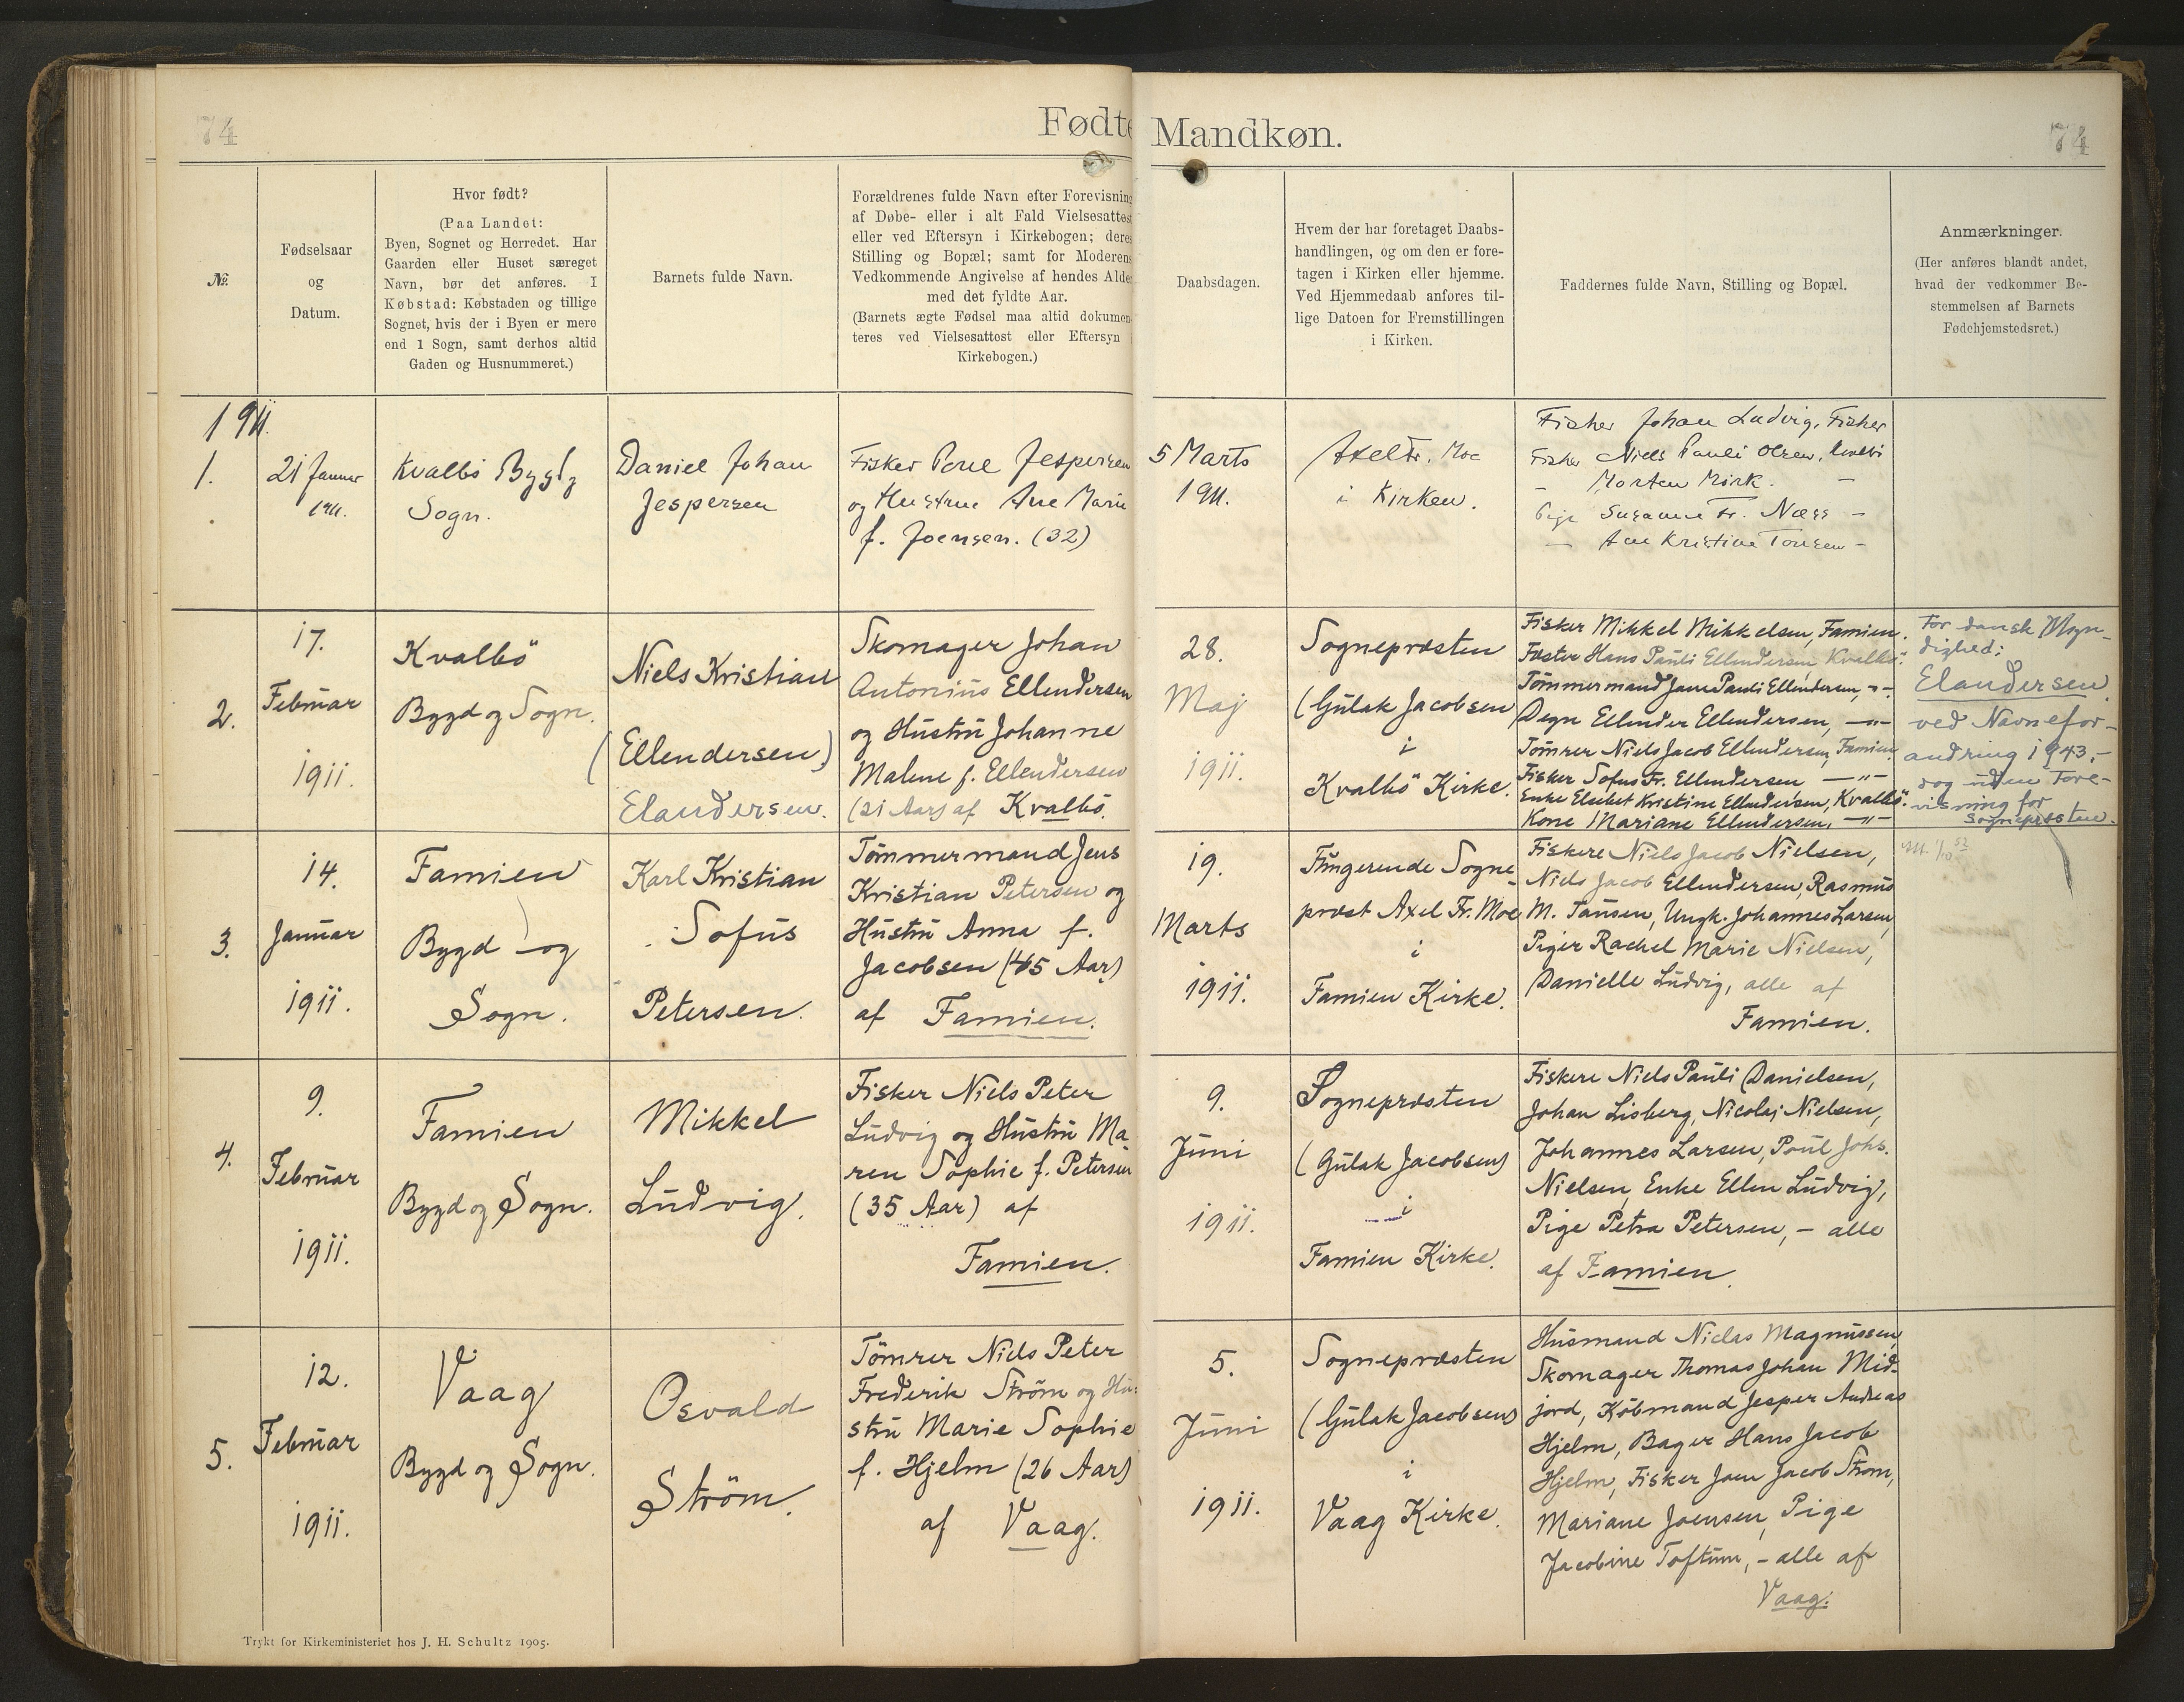 74
Fødte
Mandkøn.
74
№.
Fødselsaar
og
Datum.
Hvor født?
(Paa Landet:
Byen, Sognet og Herredet. Har
Gaarden eller Huset særeget
Navn, bør det anføres. I
Købstad: Købstaden og tillige
Sognet, hvis der i Byen er mere
end 1 Sogn, samt derhos altid
Gaden og Husnummeret.)
Barnets fulde Navn.
Forældrenes fulde Navn efter Forevisning
af Døbe- eller i alt Fald Vielsesattest
eller ved Eftersyn i Kirkebogen; deres
Stilling og Bopæl; samt for Moderens
Vedkommende Angivelse af hendes Alder
med det fyldte Aar.
(Barnets ægte Fødsel maa altid dokumen-
teres ved Vielsesattest eller Eftersyn i
Kirkebogen.)
Daabsdagen.
Hvem der har foretaget Daabs-
handlingen, og om den er fore-
tagen i Kirken eller hjemme.
Ved Hjemmedaab anføres til-
lige Datoen for Fremstillingen
i Kirken.
Faddernes fulde Navn, Stilling og Bopæl.
Anmærkninger.
(Her anføres blandt andet,
hvad der vedkommer Be-
stemmelsen af Barnets
Fødehjemstedsret.)
1911.
1.
21 Januar
1911.
Kvalbö Bygd og
Sogn.
Daniel Johan
Jespersen
Fisker Poul Jespersen
og Hustrue Ane Marie
f. Joensen. (32)
5 Marts
1911.
Axel Fr. Moe
i Kirken.
Fisker Johan Ludvig, Fisker
Fisker Niels Pauli Olsen,
- Morten Mörk. -
Pige Susanne Fr. Næss -
- Ane Kristine Tousen -
2.
17.
Februar
1911.
Kvalbö
Bygd og Sogn.
Niels Kristian
(Ellendersen)
Elandersen.
Skomager Johan
Antonius Ellendersen
og Hustru Johanne
Malene f. Ellendersen
(21 Aar) af Kvalbö.
28.
Maj
1911.
Sognepræsten
(Gulak Jacobsen)
i
Kvalbö Kirke.
Fisker Mikkel Mikkelsen, Famien.
Fæster Hans Pauli Ellendersen, Kvalbö.
Tömmermand Jens Pauli Ellendersen, -"-
Degn Ellender Ellendersen, -"-
Tömrer Niels Jacob Ellendersen, Famien.
Fisker Sofus Fr. Ellendersen -"-
Enke Elsebet Kristine Ellendersen, Kvalbö.
Kone Mariane Ellendersen, -"-
For dansk Myn-
dighed:
Elandersen
ved Navnefor-
andring 1943,-
dog uden Fore-
visning for
Sognepræsten.
3.
14.
Januar
1911.
Famien
Bygd og
Sogn.
Karl Kristian
Sofus
Petersen.
Tömmermand Jens
Kristian Petersen og
Hustru Anna f.
Jacobsen (45 Aar)
af Famien.
19.
Marts
1911.
Fungerende Sogne-
præst Axel Fr. Moe
i
Famien Kirke.
Fiskere Niels Jacob Nielsen,
Niels Jacob Ellendersen, Rasmus
M. Tausen, Ungk. Johannes Larsen,
Piger Rachel Marie Nielsen,
Danielle Ludvig, alle af
Famien.
4.
9.
Februar
1911.
Famien
Bygd og Sogn.
Mikkel
Ludvig.
Fisker Niels Peter
Ludvig og Hustru Ma
ren Sophie f. Petersen
(35 Aar) af
Famien.
9.
Juni
1911.
Sognepræsten
(Gulak Jacobsen)
i
Famien Kirke.
Fiskere Niels Pauli Danielsen,
Johan Lisberg, Nicolaj Nielsen,
Johannes Larsen, Poul Johs.
Nielsen, Enke Ellen Ludvig,
Pige Petra Petersen, - alle
af Famien.
5.
12.
Februar
1911.
Vaag
Bygd og Sogn.
Osvald
Ström.
Tömrer Niels Peter
Frederik Ström og Hu-
stru Marie Sophie
f. Hjelm (26 Aar)
af Vaag.
5.
Juni
1911.
Sognepræsten
(Gulak Jacobsen)
i
Vaag Kirke.
Husmand Niclas Magnussen,
Skomager Thomas Johan Mid-
jord, Köbmand Jesper Andreas
Hjelm, Bager Hans Jacob
Hjelm, Fisker Joen Jacob Strøm,
Mariane Joensen, Pige
Jacobine Toftum, - alle af
Vaag.
Trykt for Kirkeministeriet hos J. H. Schultz 1905.